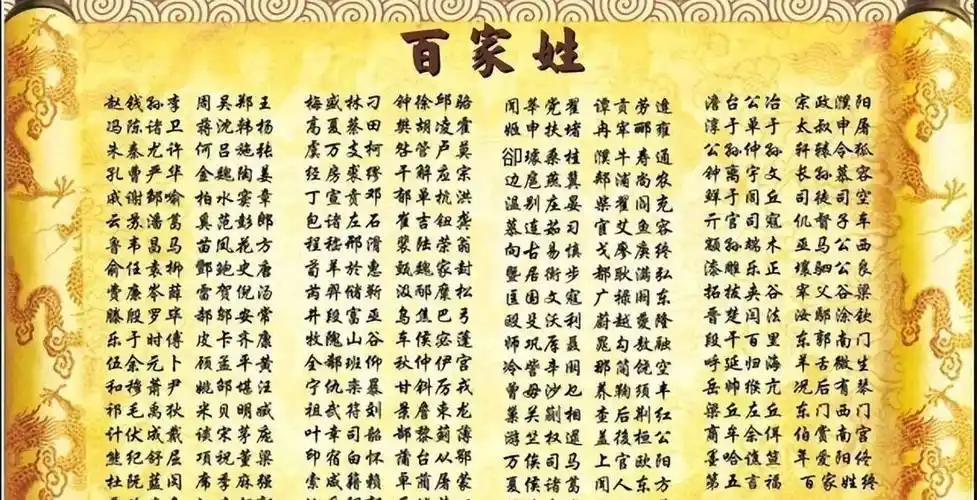 百家姓
赵钱孙李 周吴郑王
冯陈诸卫 蒋沈韩杨
朱秦尤许 何吕施张
孔曹严华 金魏陶姜
戚谢邹喻 柏水窦章
云苏潘葛 奚范彭郎
鲁韦昌马 苗凤花方
俞任袁柳 酆鲍史唐
费廉岑薛 雷贺倪汤
滕殷罗毕 郝邬安常
乐于时傅 皮卡齐康
伍余元卜 顾孟平黄
和穆萧尹 姚邵堪汪
祁毛禹狄 米贝明臧
计伏成戴 谈宋茅庞
熊纪舒屈 项祝董梁
杜阮蓝闵 席季麻强
梅盛林刁 钟徐邱骆
高夏蔡田 樊胡凌霍
虞万支柯 昝管卢莫
经房裘缪 干解应宗
丁宣贲邓 郁单杭洪
包诸左石 崔吉钮龚
程嵇邢滑 裴陆荣翁
荀羊於惠 甄魏家封
芮羿储靳 汲邴糜松
井段富巫 乌焦巴弓
牧隗山谷 车侯宓蓬
全郗班仰 秋仲伊宫
宁仇栾暴 甘斜厉戎
祖武符刘 景詹束龙
叶幸司韶 郜黎蓟薄
印宿白怀 蒲台从鄂
索咸籍赖 卓蔺屠蒙
闻莘党翟 谭贡劳逄
姬申扶堵 冉宰郦雍
卻璩桑桂 濮牛寿通
边扈燕冀 郏浦尚农
温别庄晏 柴瞿阎充
慕连茹习 宦艾鱼容
向古易慎 戈廖庾终
暨居衡步 都耿满弘
匡国文寇 广禄阙东
殴殳沃利 蔚越夔隆
师巩厍聂 晁勾敖融
冷訾辛阚 那简饶空
曾毋沙乜 养鞠须丰
巢关蒯相 查后荆红
游竺权逯 盖後桓公
万俟司马 上官欧阳
夏侯诸葛 闻人东方
澹台公冶 宗政濮阳
淳于单于 太叔申屠
公孙仲孙 轩辕令狐
钟离宇文 长孙慕容
鲜于闾丘 司徒司空
亓官司寇 仉督子车
颛孙端木 巫马公西
漆雕乐正 壤驷公良
拓拔夹谷 宰父谷梁
晋楚闫法 汝鄢涂钦
段干百里 东郭南门
呼延归海 羊舌微生
岳帅缑亢 况后有琴
梁丘左丘 东门西门
商牟佘佴 伯赏南宫
墨哈谯笪 年爱阳佟
第五言福 百家姓终